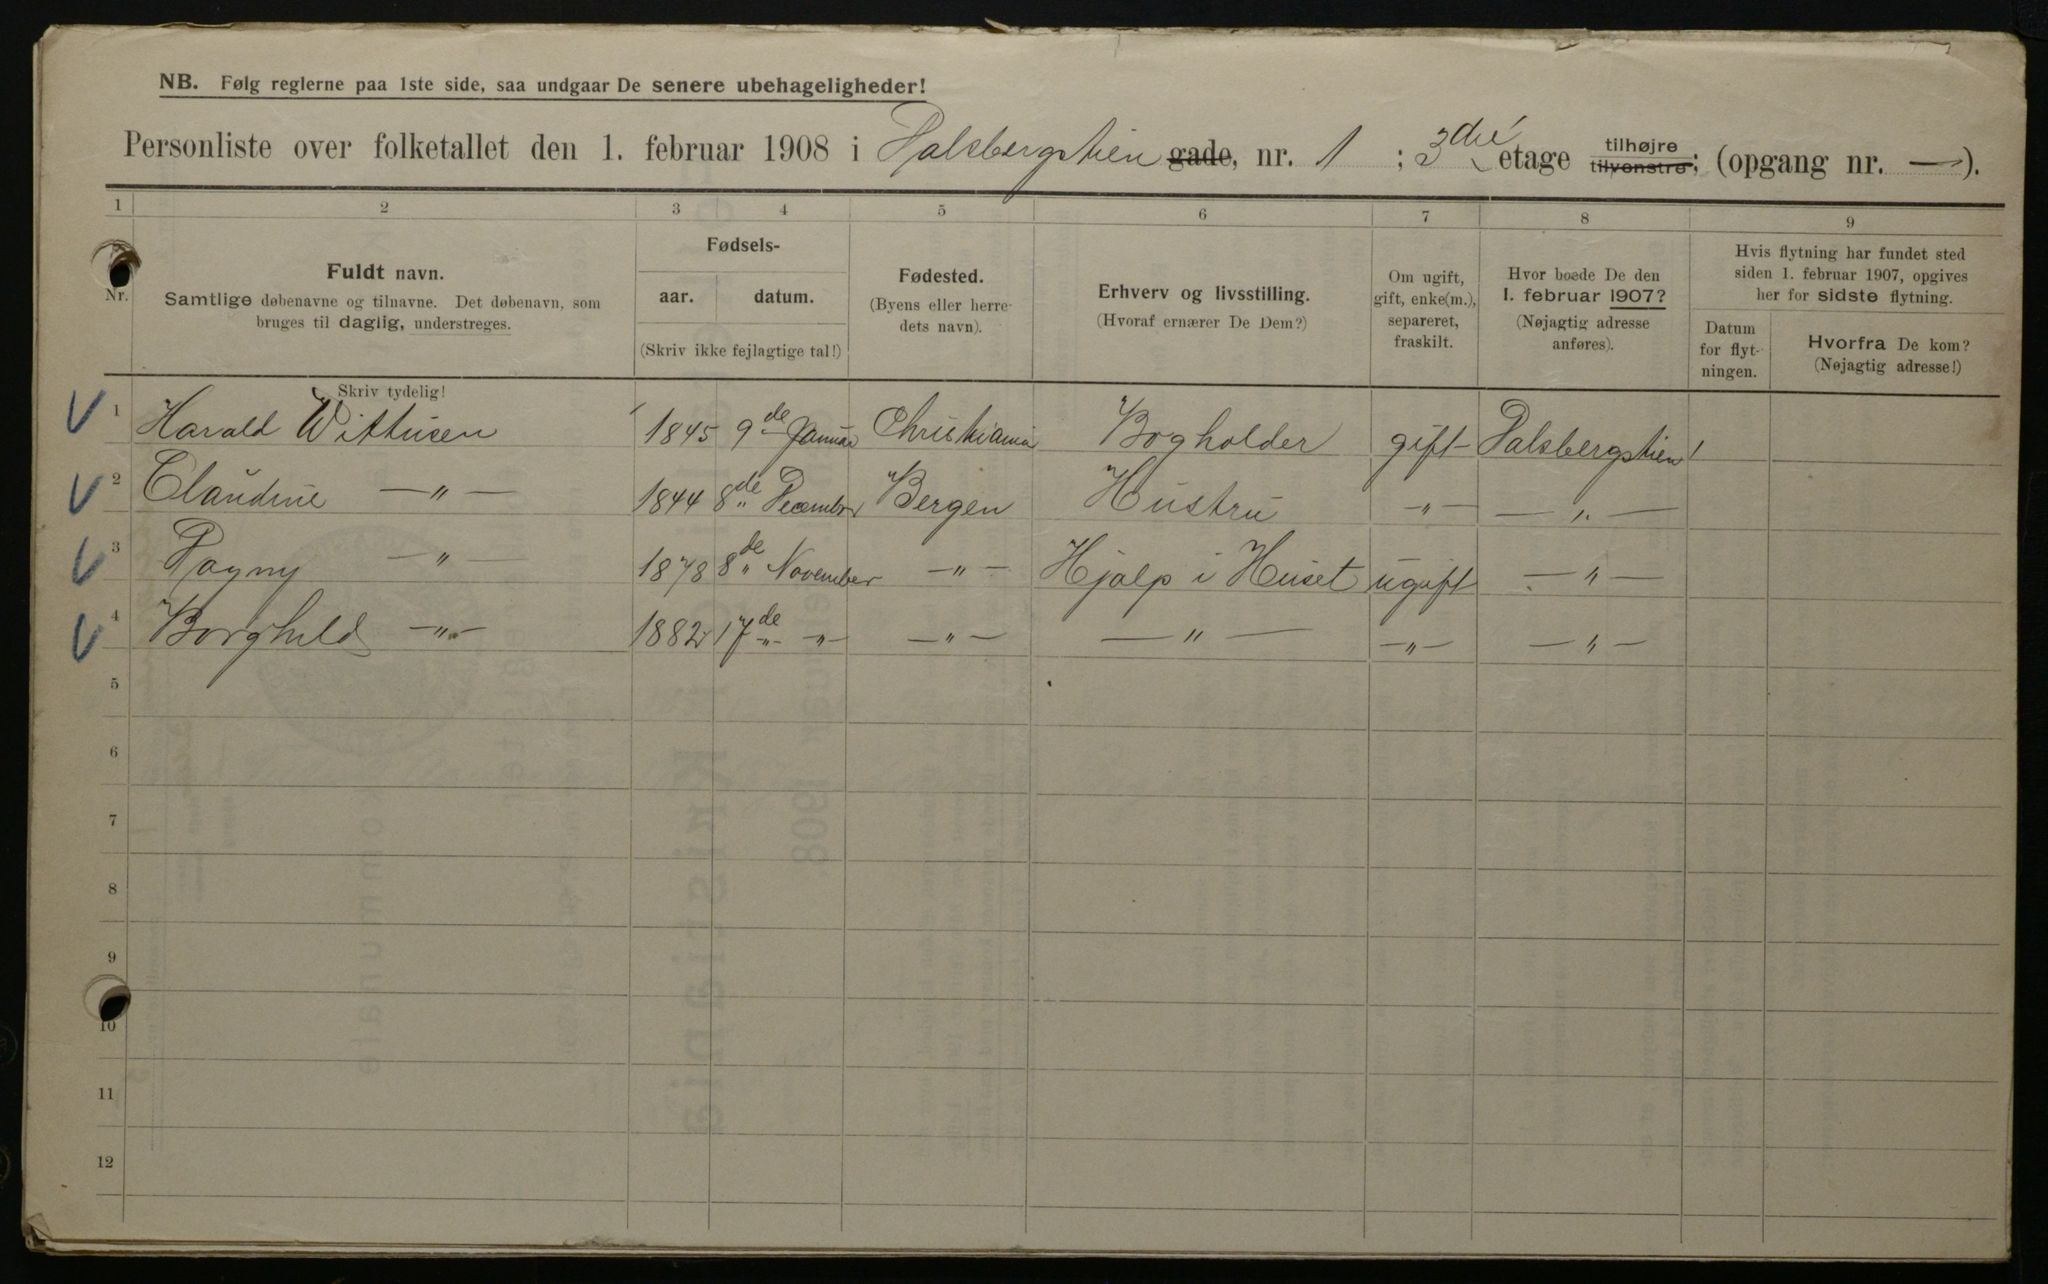 NB. Følg reglerne paa 1ste side, saa undgaar De senere ubehageligheder!
Personliste over folketallet den 1. februar 1908 i Dalsbergstien gade, nr. 1 ; 3die etage tilhøjre tilvenstre; (opgang nr. — ).
1 2 3 4 5 6 7 8 9
Nr.
Fuldt navn.
Samtlige døbenavne og tilnavne. Det døbenavn, som
bruges til daglig, understreges.
Skriv tydelig!
Fødsels-
aar. datum.
(Skriv ikke fejlagtige tal!)
Fødested.
(Byens eller herre-
dets navn).
Erhverv og livsstilling.
(Hvoraf ernærer De Dem?)
Om ugift,
gift, enke(m.),
separeret,
fraskilt.
Hvor boede De den
1. februar 1907?
(Nøjagtig adresse
anføres).
Hvis flytning har fundet sted
siden 1. februar 1907, opgives
her for sidste flytning.
Datum
for flyt-
ningen.
Hvorfra De kom?
(Nøjagtig adresse!)
1 Harald Wittusen 1845 9de Januar Christiania Bogholder gift Dalsbergstien 1
2 Claudine —"— 1844 8de December Bergen Hustru —"— —"—
3 Dagny —"— 1878 8de November —"— Hjælp i Huset ugift —"—
4 Borghild —"— 1882 17de —"— —"— —"— —"— —"—
5
6
7
8
9
10
11
12